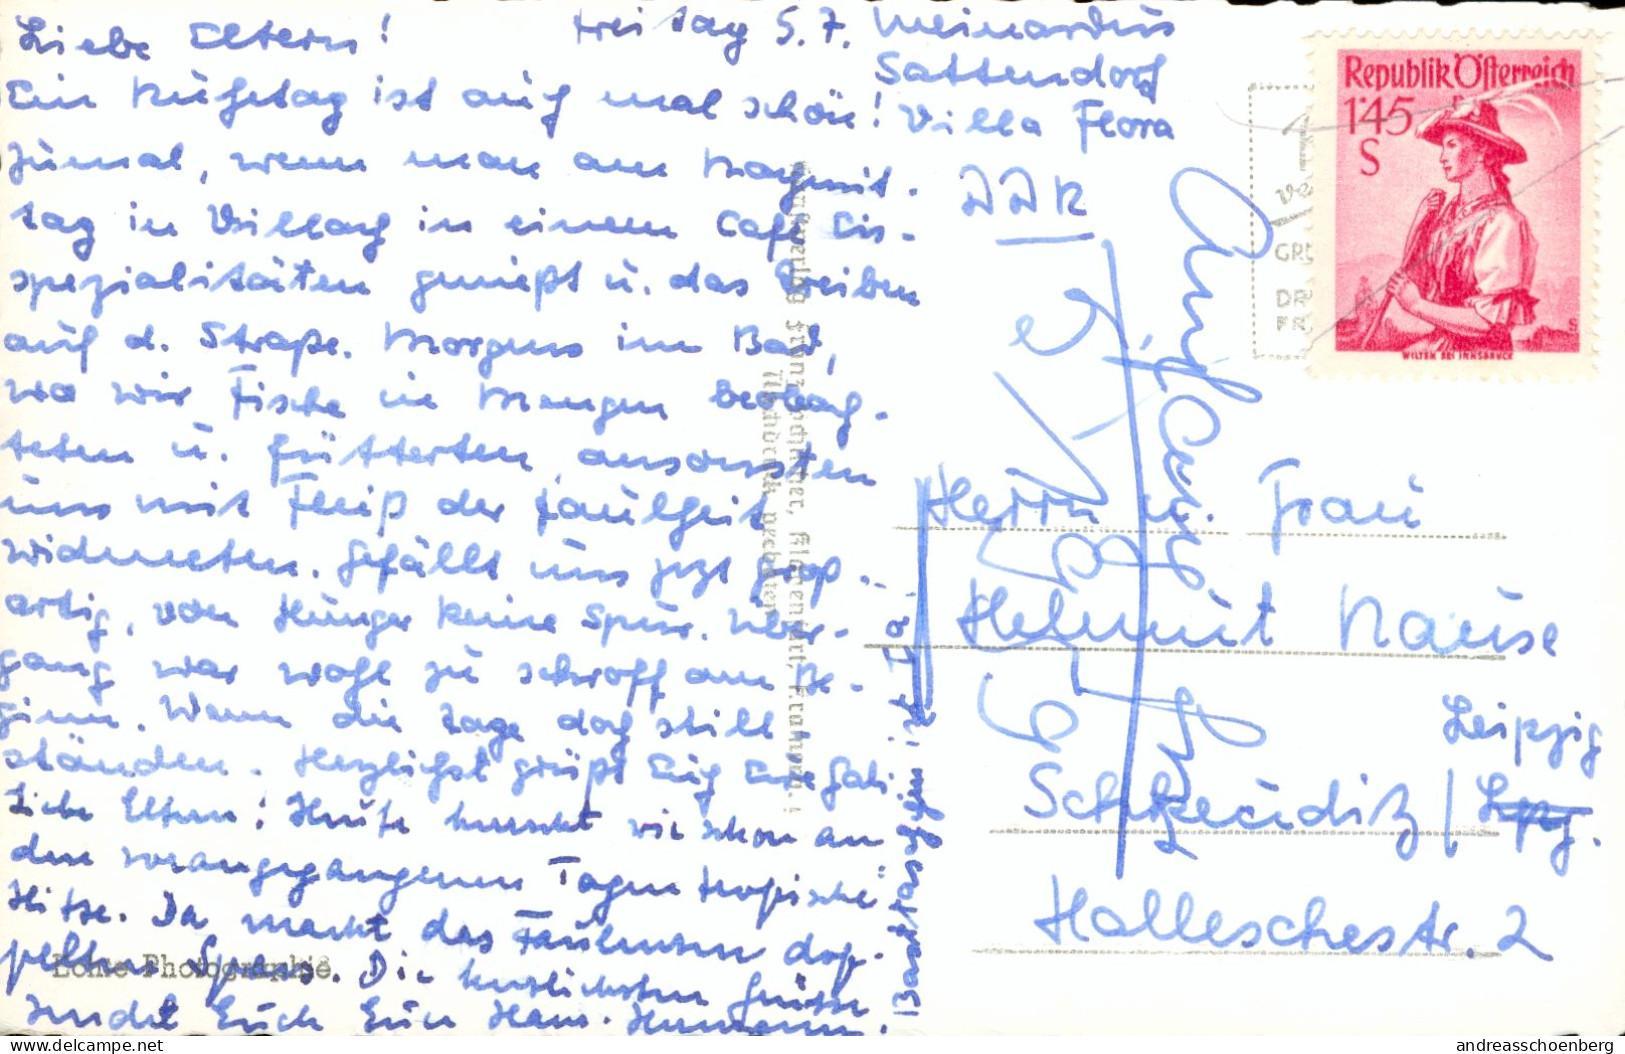 Liebe Eltern! Freitag 5.7.
Ein Ruhetag ist auch mal schön!
Zumal, wenn man am Nachmit-
tag in Villach in einem Café Eis-
spezialitäten genießt u. das Treiben
auf d. Straße. Morgens im Bad,
wo wir Fische in Mengen beobach-
teten u. fütterten, ansonsten
uns mit Fleiß der Faulheit
widmeten. Gefällt uns jetzt groß-
artig, von Hunger keine Spur. Über-
gang war wohl zu schroff am Be-
ginn. Wenn die Tage doch still
ständen. Herzlichst grüßt Euch Eure Gabi.
Liebe Eltern! Heute herrscht wie schon an
den vorangegangenen Tagen tropische
Hitze. Da macht das Faulenzen dop-
pelten Spass. Die herzlichsten Grüsse
sendet Euch Euer Hans-Hermann.
Meinardus
Sattendorf
Villa Flora
DDR
Herrn u. Frau
Helmut Nause
Leipzig
Schkeuditz / Lpz.
Halleschestr. 2
Republik Österreich
1'45
S
WILTEN BEI INNSBRUCK
Echte Photographie
andreasschoenberg